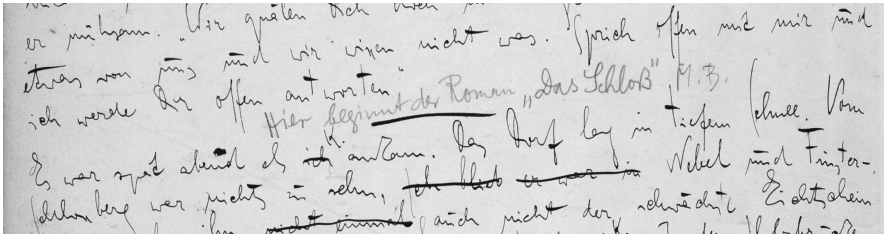 er mühsam. „Wir quälen Dich
etwas von uns und wir wissen nicht was. Sprich offen mit mir und
ich werde Dir offen antworten“
Hier beginnt der Roman „Das Schloß“ M.B.
Es war spät abend als ich K. ankam. Das Dorf lag in tiefem Schnee. Vom
Schlossberg war nichts zu sehn, ich blieb er war in Nebel und Finster-
nicht einmal auch nicht der schwächste Lichtschein